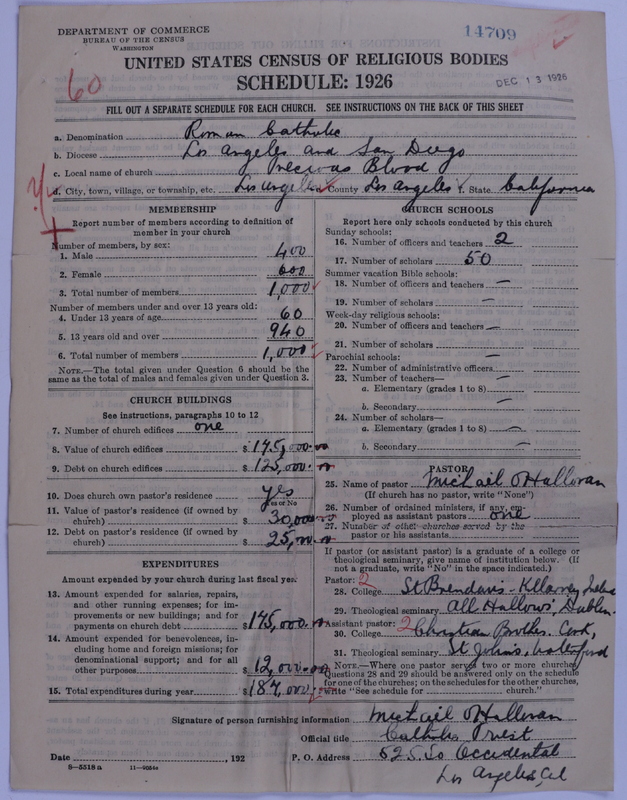 DEPARTMENT OF COMMERCE
BUREAU OF THE CENSUS
WASHINGTON
14709
DEC 13 1926
60
UNITED STATES CENSUS OF RELIGIOUS BODIES
SCHEDULE: 1926
FILL OUT A SEPARATE SCHEDULE FOR EACH CHURCH. SEE INSTRUCTIONS ON THE BACK OF THIS SHEET
a. Denomination Roman Catholic
b. Diocese Los Angeles and San Diego
c. Local name of church Precious Blood
d. City, town, village, or township, etc. Los Angeles e. County Los Angeles f. State California
MEMBERSHIP
Report number of members according to definition of
member in your church
Number of members, by sex:
1. Male 400
2. Female 600
3. Total number of members 1,000
Number of members under and over 13 years old:
4. Under 13 years of age 60
5. 13 years old and over 940
6. Total number of members 1,000
NOTE.—The total given under Question 6 should be
same as the total of males and females given under Question 3.
CHURCH BUILDINGS
See instructions, paragraphs 10 to 12
7. Number of church edifices one
8. Value of church edifices $175,000.00
9. Debt on church edifices $125,000.00
10. Does church own pastor's residence yes
Yes or No
11. Value of pastor's residence (if owned by
church) $30,000
12. Debt on pastor's residence (if owned by
church) $25,000.00
EXPENDITURES
Amount expended by your church during last fiscal year
13. Amount expended for salaries, repairs,
and other running expenses; for im-
provements or new buildings; and for
payments on church debt $175,000.00
14. Amount expended for benevolences, in-
cluding home and foreign missions; for
denominational support; and for all
other purposes $12,000.00
15. Total expenditures during year $187,000
CHURCH SCHOOLS
Report here only schools conducted by this church
Sunday schools:
16. Number of officers and teachers 2
17. Number of scholars 50
Summer vacation Bible schools:
18. Number of officers and teachers —
19. Number of scholars —
Week-day religious schools:
20. Number of officers and teachers —
21. Number of scholars —
Parochial schools:
22. Number of administrative officers —
23. Number of teachers—
a. Elementary (grades 1 to 8) —
b. Secondary —
24. Number of scholars—
a. Elementary (grades 1 to 8) —
b. Secondary —
PASTOR
25. Name of pastor Michail O'Halloran
(If church has no pastor, write "None")
26. Number of ordained ministers, if any, em-
ployed as assistant pastors one
27. Number of other churches served by the
pastor or his assistants
If pastor (or assistant pastor) is a graduate of a college or
theological seminary, give name of institution below. (If
not a graduate, write "No" in the space indicated.)
Pastor: 2
28. College St Brendan's - Killarney Ireland
29. Theological seminary All Hallows, Dublin
Assistant pastor: 2
30. College Christian Brothers. Cork,
31. Theological seminary St John's, Waterford
NOTE.—Where one pastor served two or more churches,
Questions 28 and 29 should be answered only on the schedule
for one of the churches; on the schedules for the other churches,
write "See schedule for church."
Signature of person furnishing information Michail O'Halloran
Official title Catholic Priest
Date , 192 P. O. Address 625 So Occidental
Los Angeles, Cal
8—5518 a 11—9054a